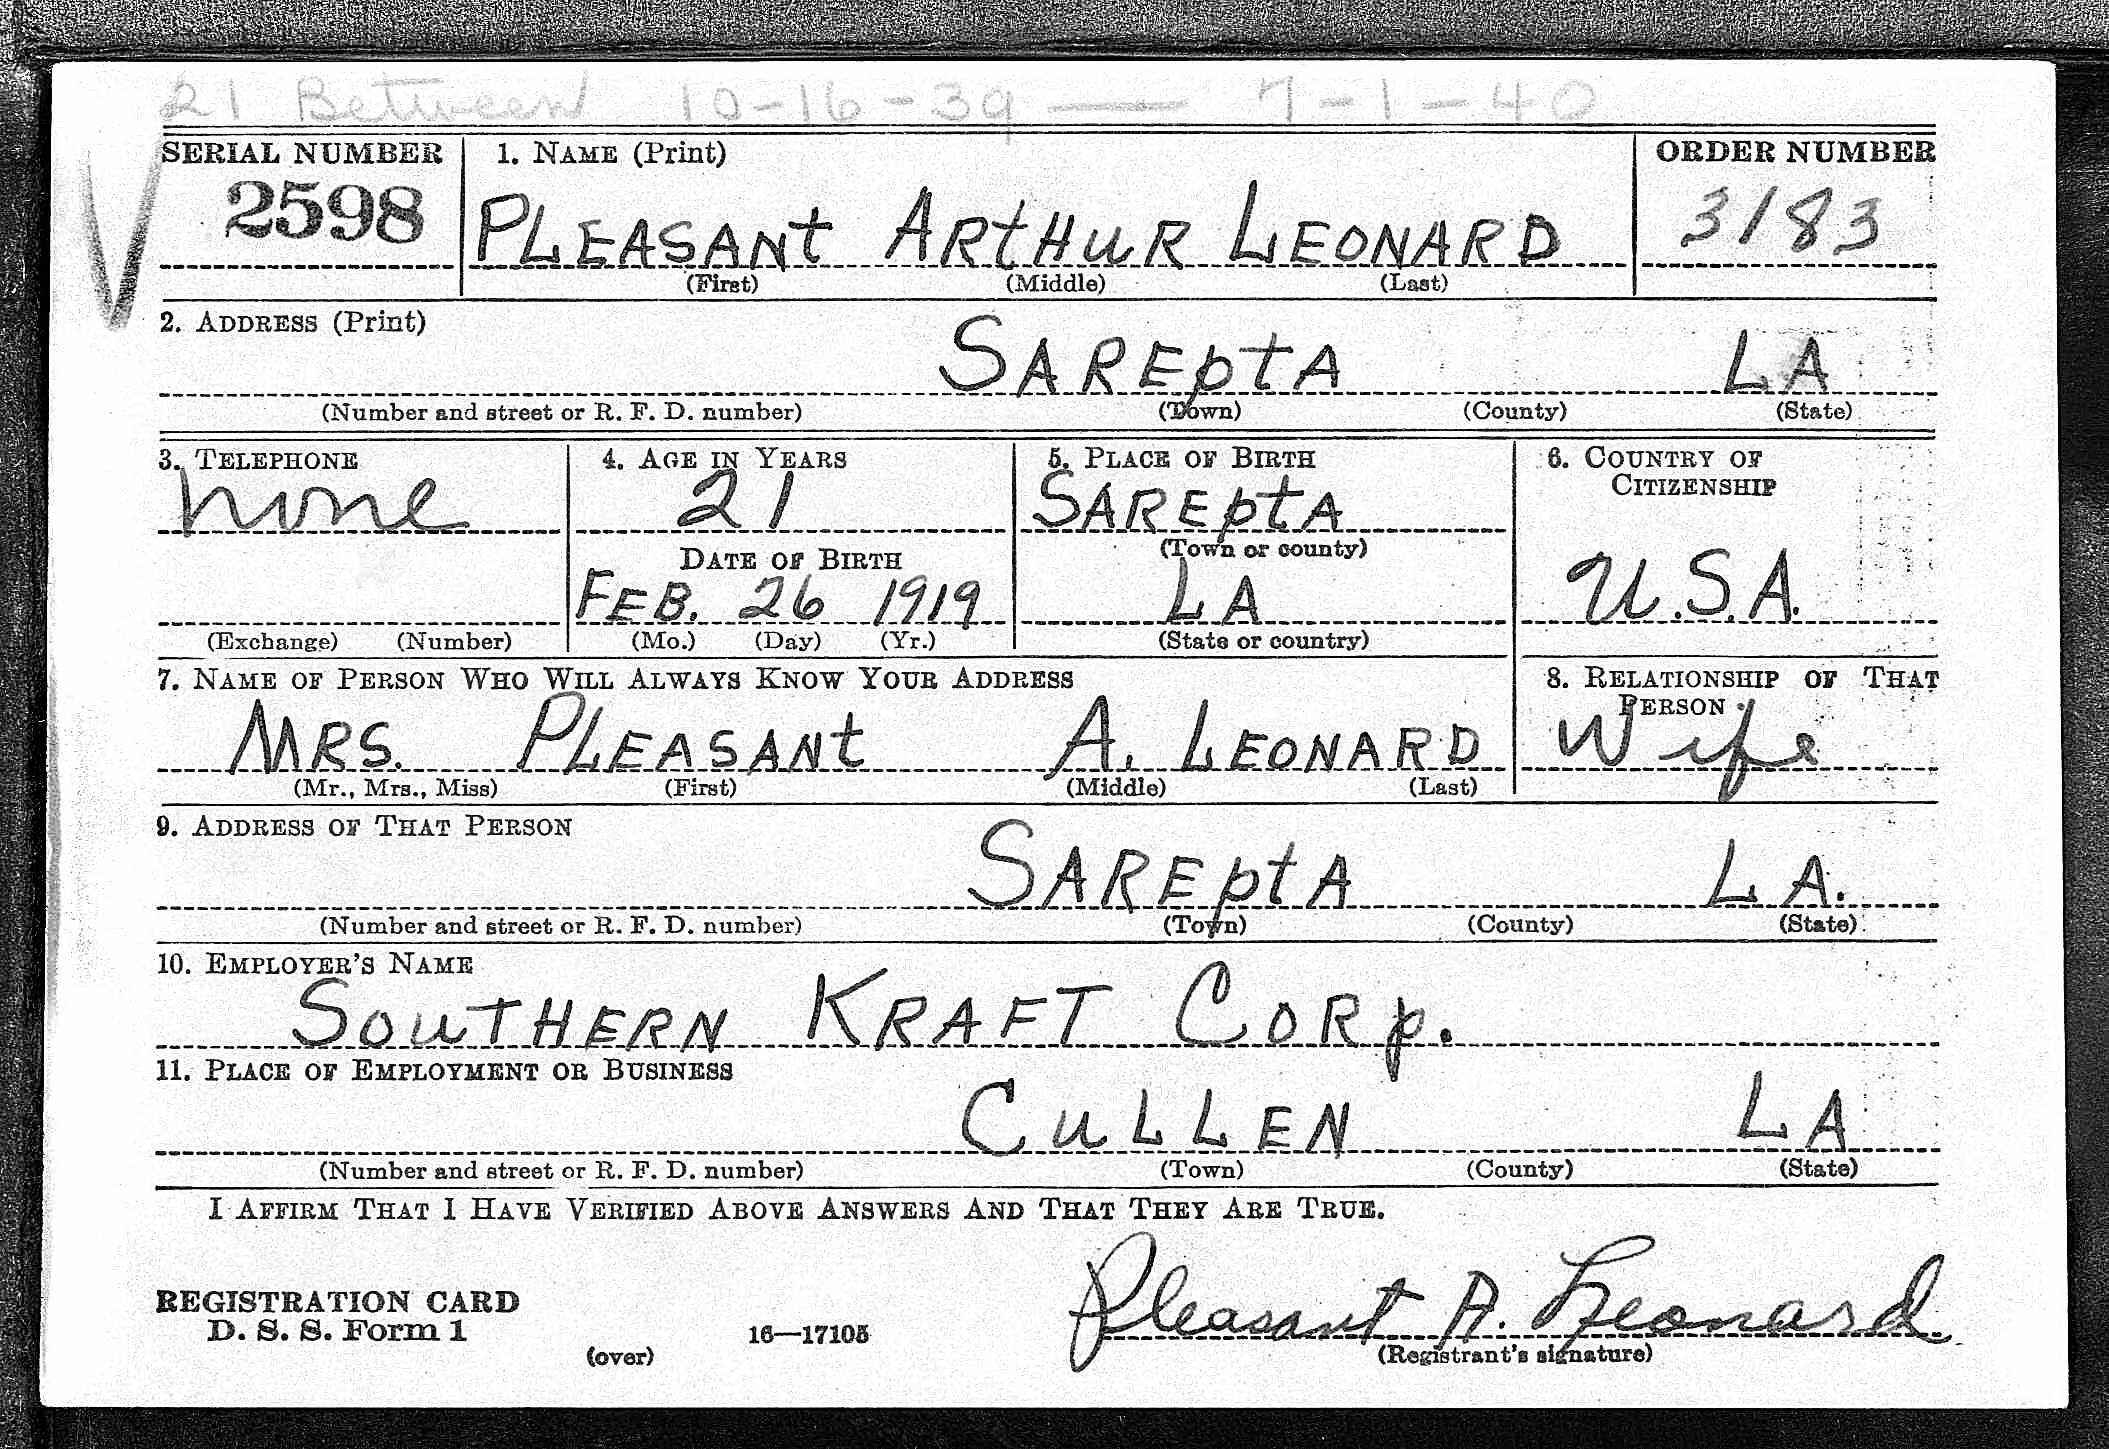 21 Between 10-16-39 — 7-1-40
SERIAL NUMBER 1. NAME (Print) ORDER NUMBER
2598 PLEASANT ARTHUR LEONARD 3183
(First) (Middle) (Last)
2. ADDRESS (Print)
SAREPTA LA
(Number and street or R. F. D. number) (Town) (County) (State)
3. TELEPHONE 4. AGE IN YEARS 5. PLACE OF BIRTH 6. COUNTRY OF
CITIZENSHIP
none 21 SAREPTA
(Town or county)
DATE OF BIRTH
FEB. 26 1919 LA U.S.A.
(Exchange) (Number) (Mo.) (Day) (Yr.) (State or country)
7. NAME OF PERSON WHO WILL ALWAYS KNOW YOUR ADDRESS 8. RELATIONSHIP OF THAT
PERSON
MRS. PLEASANT A. LEONARD Wife
(Mr., Mrs., Miss) (First) (Middle) (Last)
9. ADDRESS OF THAT PERSON
SAREPTA LA.
(Number and street or R. F. D. number) (Town) (County) (State)
10. EMPLOYER'S NAME
SOUTHERN KRAFT CORP.
11. PLACE OF EMPLOYMENT OR BUSINESS
CULLEN LA
(Number and street or R. F. D. number) (Town) (County) (State)
I AFFIRM THAT I HAVE VERIFIED ABOVE ANSWERS AND THAT THEY ARE TRUE.
REGISTRATION CARD
D. S. S. Form 1 16—17105 Pleasant A. Leonard
(over) (Registrant's signature)